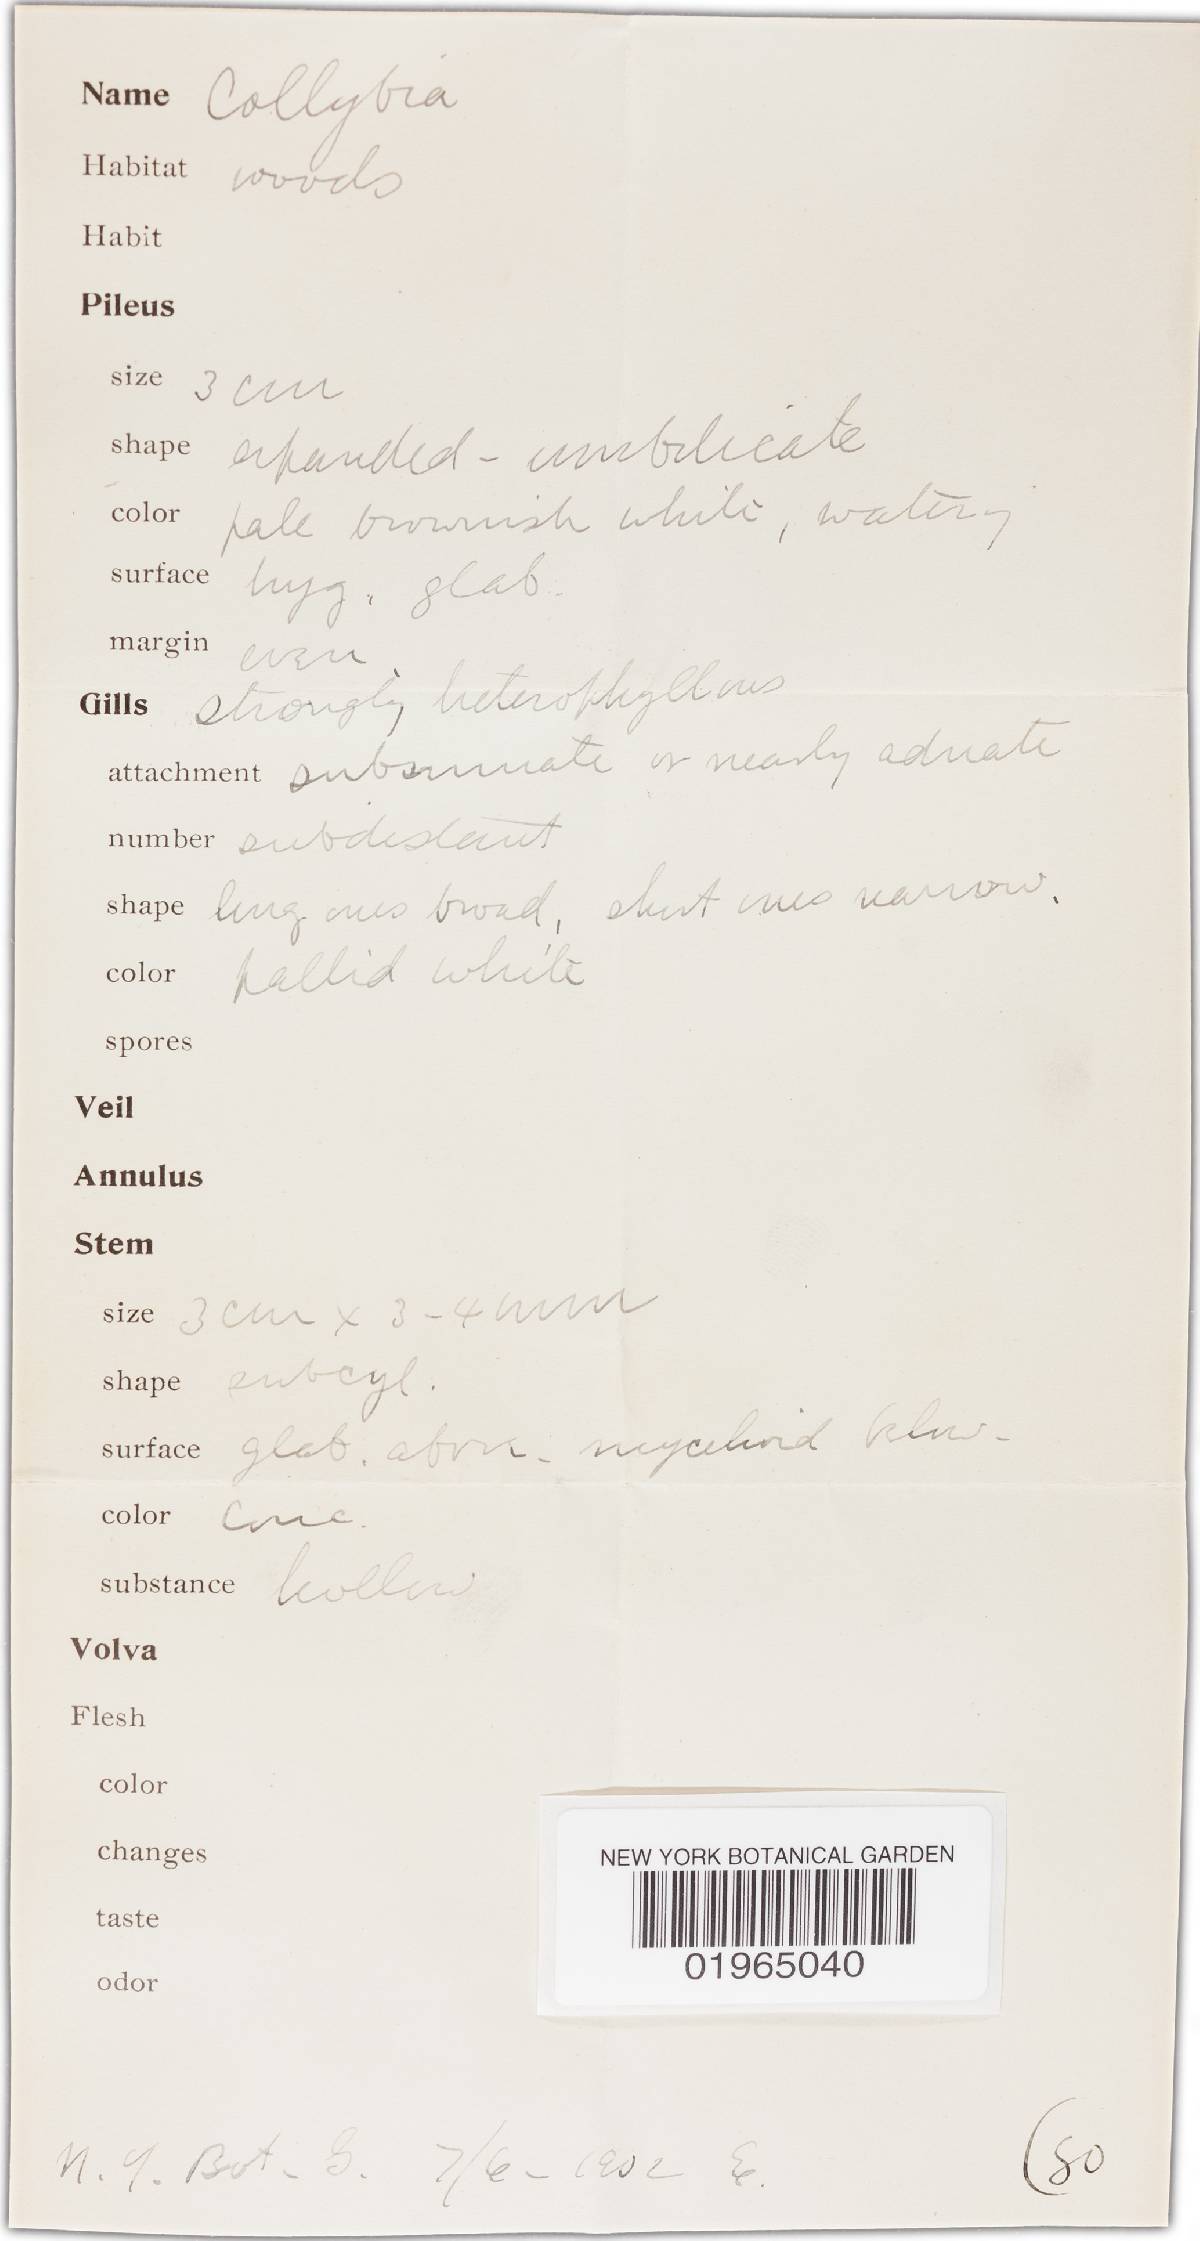 Name Collybia
Habitat woods
Habit
Pileus
size 3 cm
shape expanded - umbilicate
color pale brownish white, watery
surface hyg. glab.
margin even.
Gills strongly heterophyllous
attachment subsinuate or nearly adnate
number subdistant
shape long ones broad, short ones narrow.
color pallid white
spores
Veil
Annulus
Stem
size 3 cm x 3-4 mm
shape subcyl.
surface glab. above - myceloid below -
color conc.
substance hollow
Volva
Flesh
color
changes
taste
odor
NEW YORK BOTANICAL GARDEN
01965040
N. Y. Bot. G. 7/6 - 1902 E.
(80